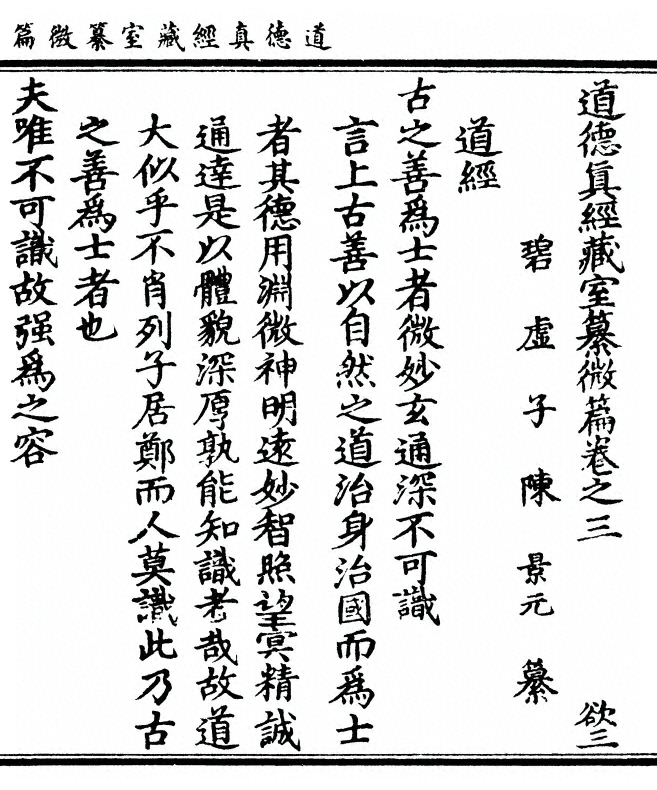 道德真經藏室纂微篇
道德眞經藏室纂微篇卷之三
欲三
碧虛子陳景元纂
道經
古之善爲士者微妙玄通深不可識
言上古善以自然之道治身治國而爲士
者其德用淵微神明遠妙智照望冥精誠
通達是以體貌深厚孰能知識者哉故道
大似乎不肖列子居鄭而人莫識此乃古
之善爲士者也
夫唯不可識故强爲之容